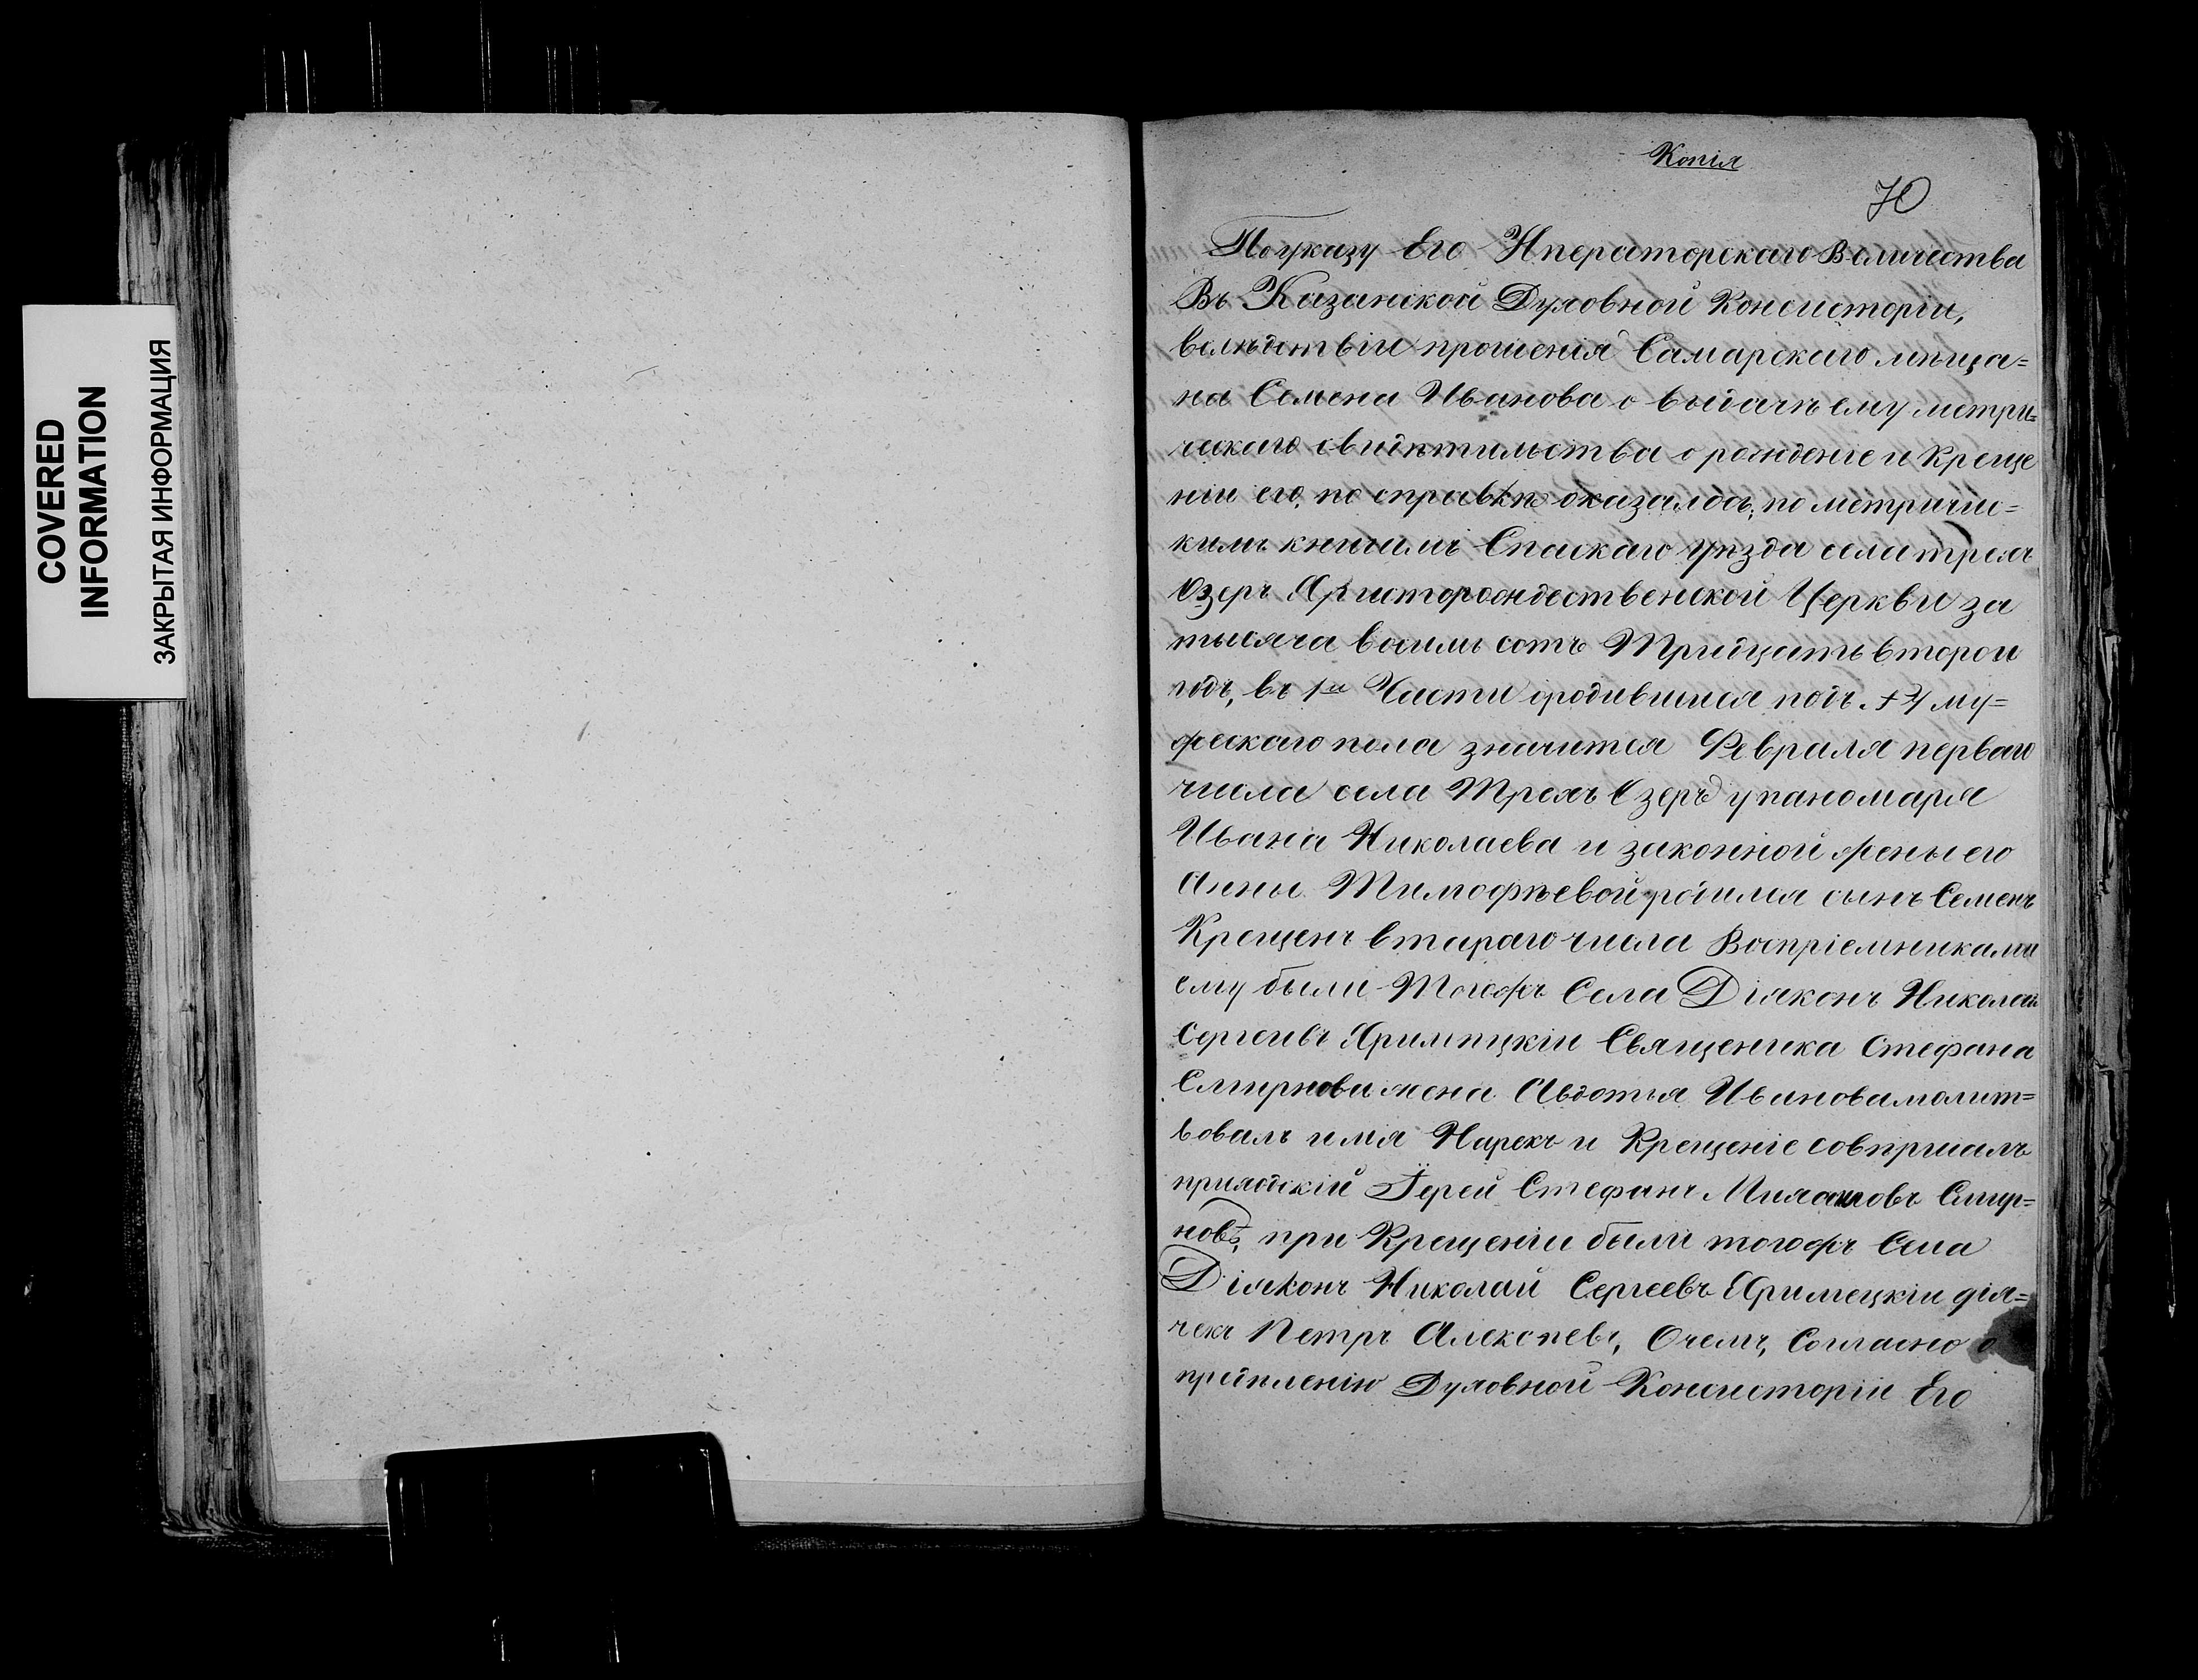 COVERED
INFORMATION
ЗАКРЫТАЯ ИНФОРМАЦИЯ
Копія
70
По указу Его Нператорскаго Величества
Въ Казанской Духовной Консисторіи,
вслѣдствіи прошенія Самарскаго мѣща=
на Семена Иванова о выдачѣ ему метри=
ческаго свидѣтильства о рождѣніе и Креще
ніи его, по справкѣ оказалось, по метричис=
кимъ книгамъ Спаскаго уѣзда села трехъ
Озеръ Христорождественской Церкви за
тысяча восимь сотъ Тридцать второи
годъ, въ 1й Части ородившихся подъ му=
жескаго пола значится Февраля перваго
числа села Трехъ Озеръ у паномаря
Ивана Николаева и законной жены его
Анны Тимофѣевой родился сынъ Семенъ
Крещенъ втараго числа Воспріемниками
ему были Тогожъ Села Діяконъ Николай
Сергеивъ Хримпцкіи Священика Стефана
Смирнова жена Авдотья Иванова молит=
вовалъ имя Нарекъ и Крещеніе совпршалъ
приходскій Іерей Стефанъ Михаиловъ Смир=
новъ, при Крещеніи были тогожъ Села
Діяконъ Николай Сергеевъ Хримецкіи діа=
чекъ Петръ Алексѣевъ, Очемъ, Согласно о
прѣтленію Духовной Консисторіи Его